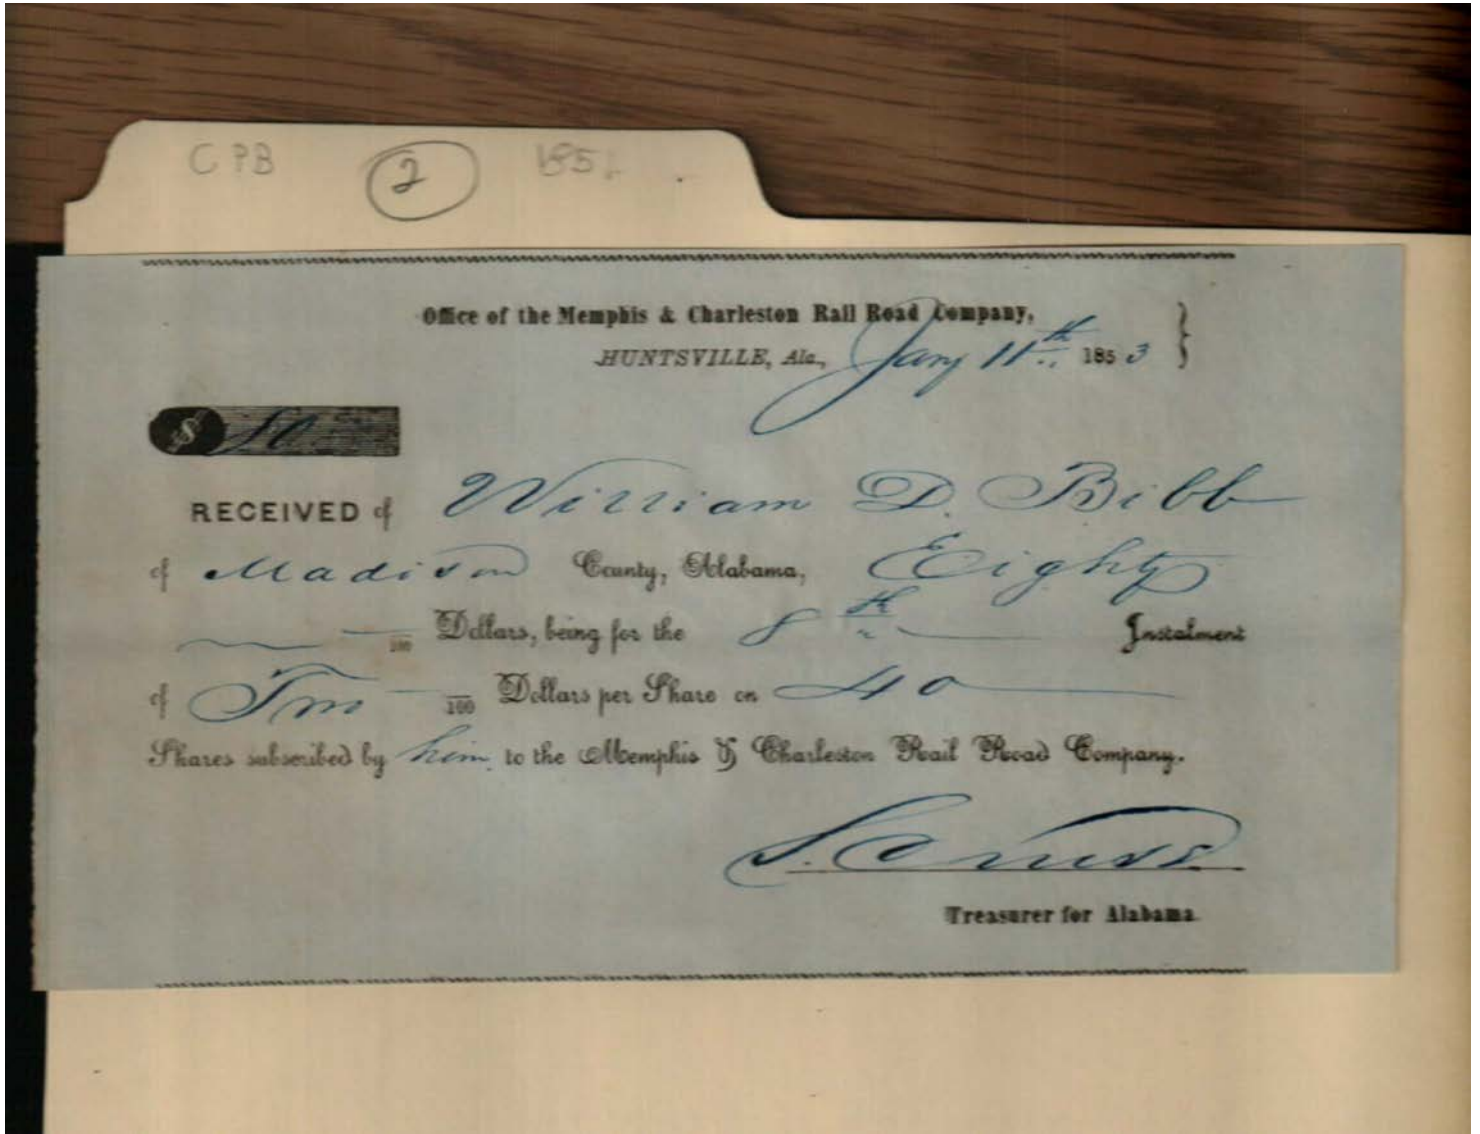 CPB 2 185
Office of the Memphis & Charleston Rail Road Company,
HUNTSVILLE, Ala., Jany 11th 1853
$ 80
RECEIVED of William D. Bibb
of Madison County, Alabama, Eighty
100 Dollars, being for the 8th Instalment
of Two 100 Dollars per Share on 40
Shares subscribed by him to the Memphis & Charleston Rail Road Company.
S. Cruse
Treasurer for Alabama.